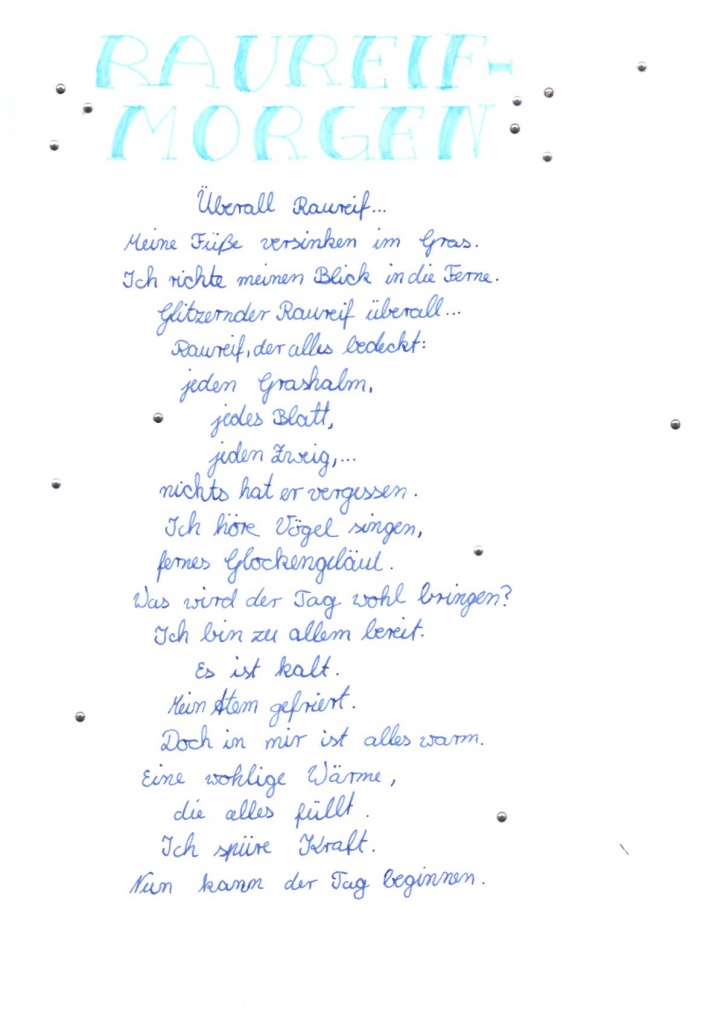 RAUREIF-
MORGEN
Überall Raureif...
Meine Füße versinken im Gras.
Ich richte meinen Blick in die Ferne.
Glitzernder Raureif überall...
Raureif, der alles bedeckt:
jeden Grashalm,
jedes Blatt,
jeden Zweig,...
nichts hat er vergessen.
Ich höre Vögel singen,
fernes Glockengeläut.
Was wird der Tag wohl bringen?
Ich bin zu allem bereit.
Es ist kalt.
Mein Atem gefriert.
Doch in mir ist alles warm.
Eine wohlige Wärme,
die alles füllt.
Ich spüre Kraft.
Nun kann der Tag beginnen.